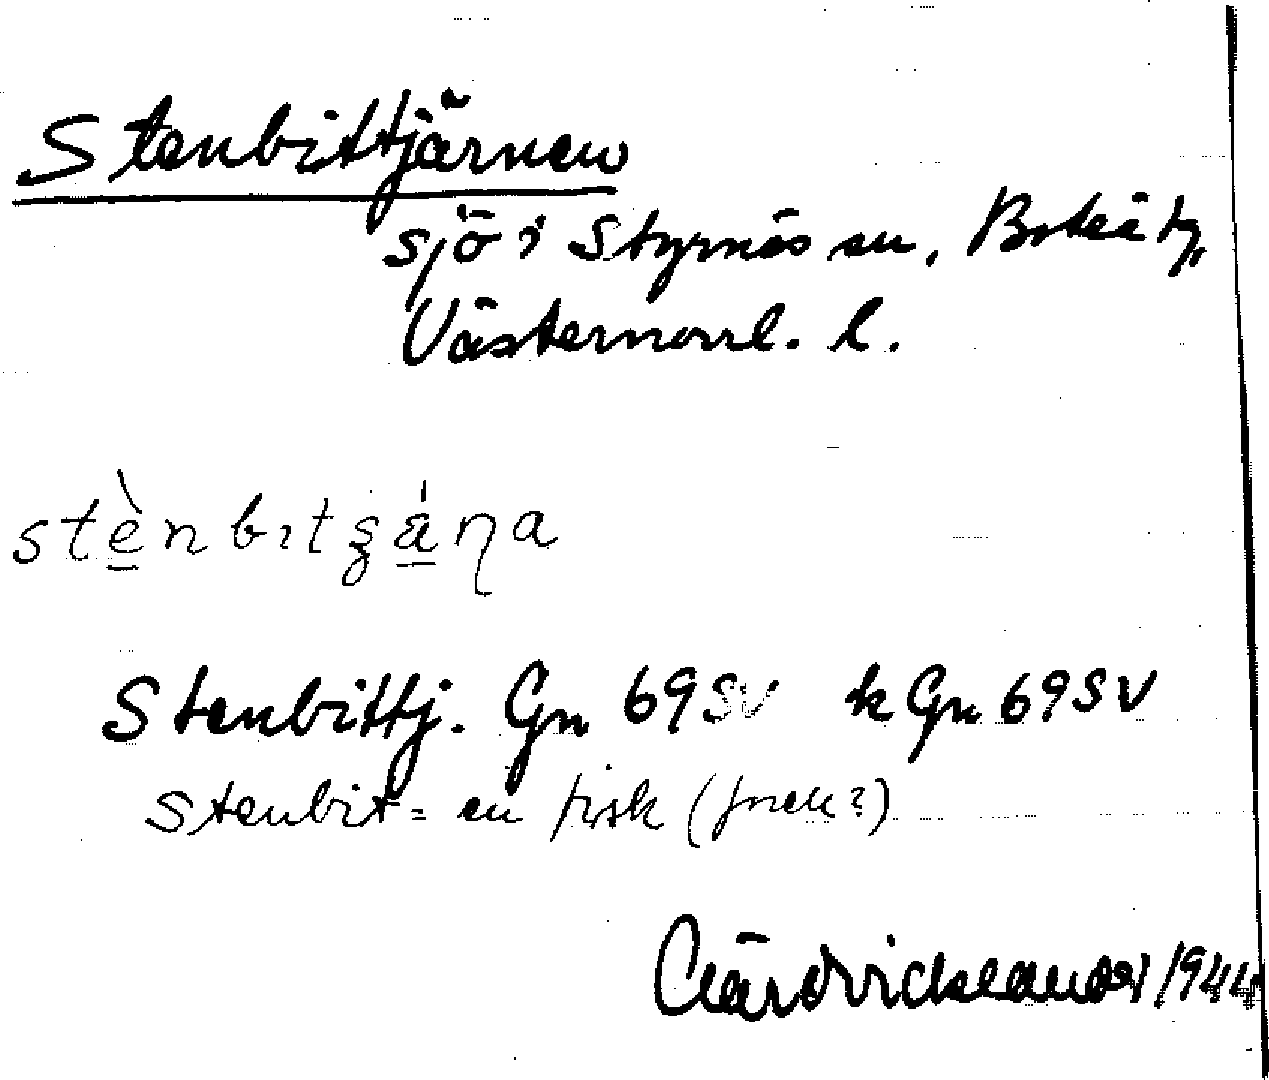 Stenbittjärnen
sjö i Styrnäs sn, Boteå tg,
Västernorrl. l.
stènbıtʂá̱ŋa
Stenbittj. Gn 69 SV k Gn 69 SV
Stenbit = en fisk
1944